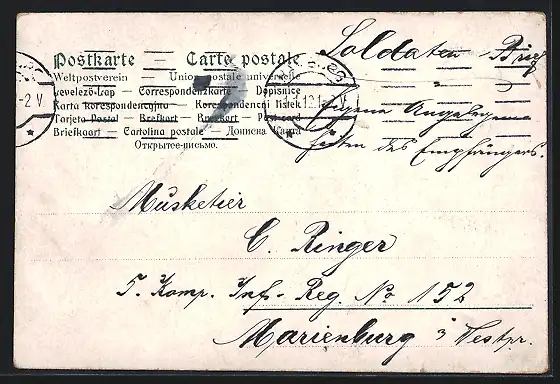 Soldaten Brief
Postkarte — Carte postale
Weltpostverein — Union postale universelle
Levelező-Lap — Correspondenzkarte — Dopisnice
Karta korespondencyjna — Korespondenční lístek
Tarjeta Postal — Brefkort — Brevkort — Post card
Briefkaart — Cartolina postale — Дописна Карта
Открытое-письмо.
2 V
Eigene Angelegen
heiten des Empfängers.
Musketier
C. Ringer
5. Komp. Inf.-Reg. No 152
Marienburg i Westpr.